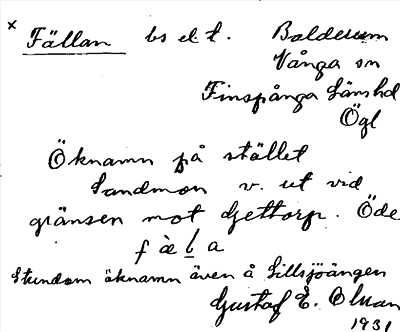 × Fällan bs el t. Balderum
Vånga sn
Finspånga länshd
Ögl
Öknamn på stället
Sandmon v. ut vid
gränsen mot Gettorp. Öde
f à l a
Stundom öknamn även å Lillsjöängen
Gustaf E. Olsson
1931